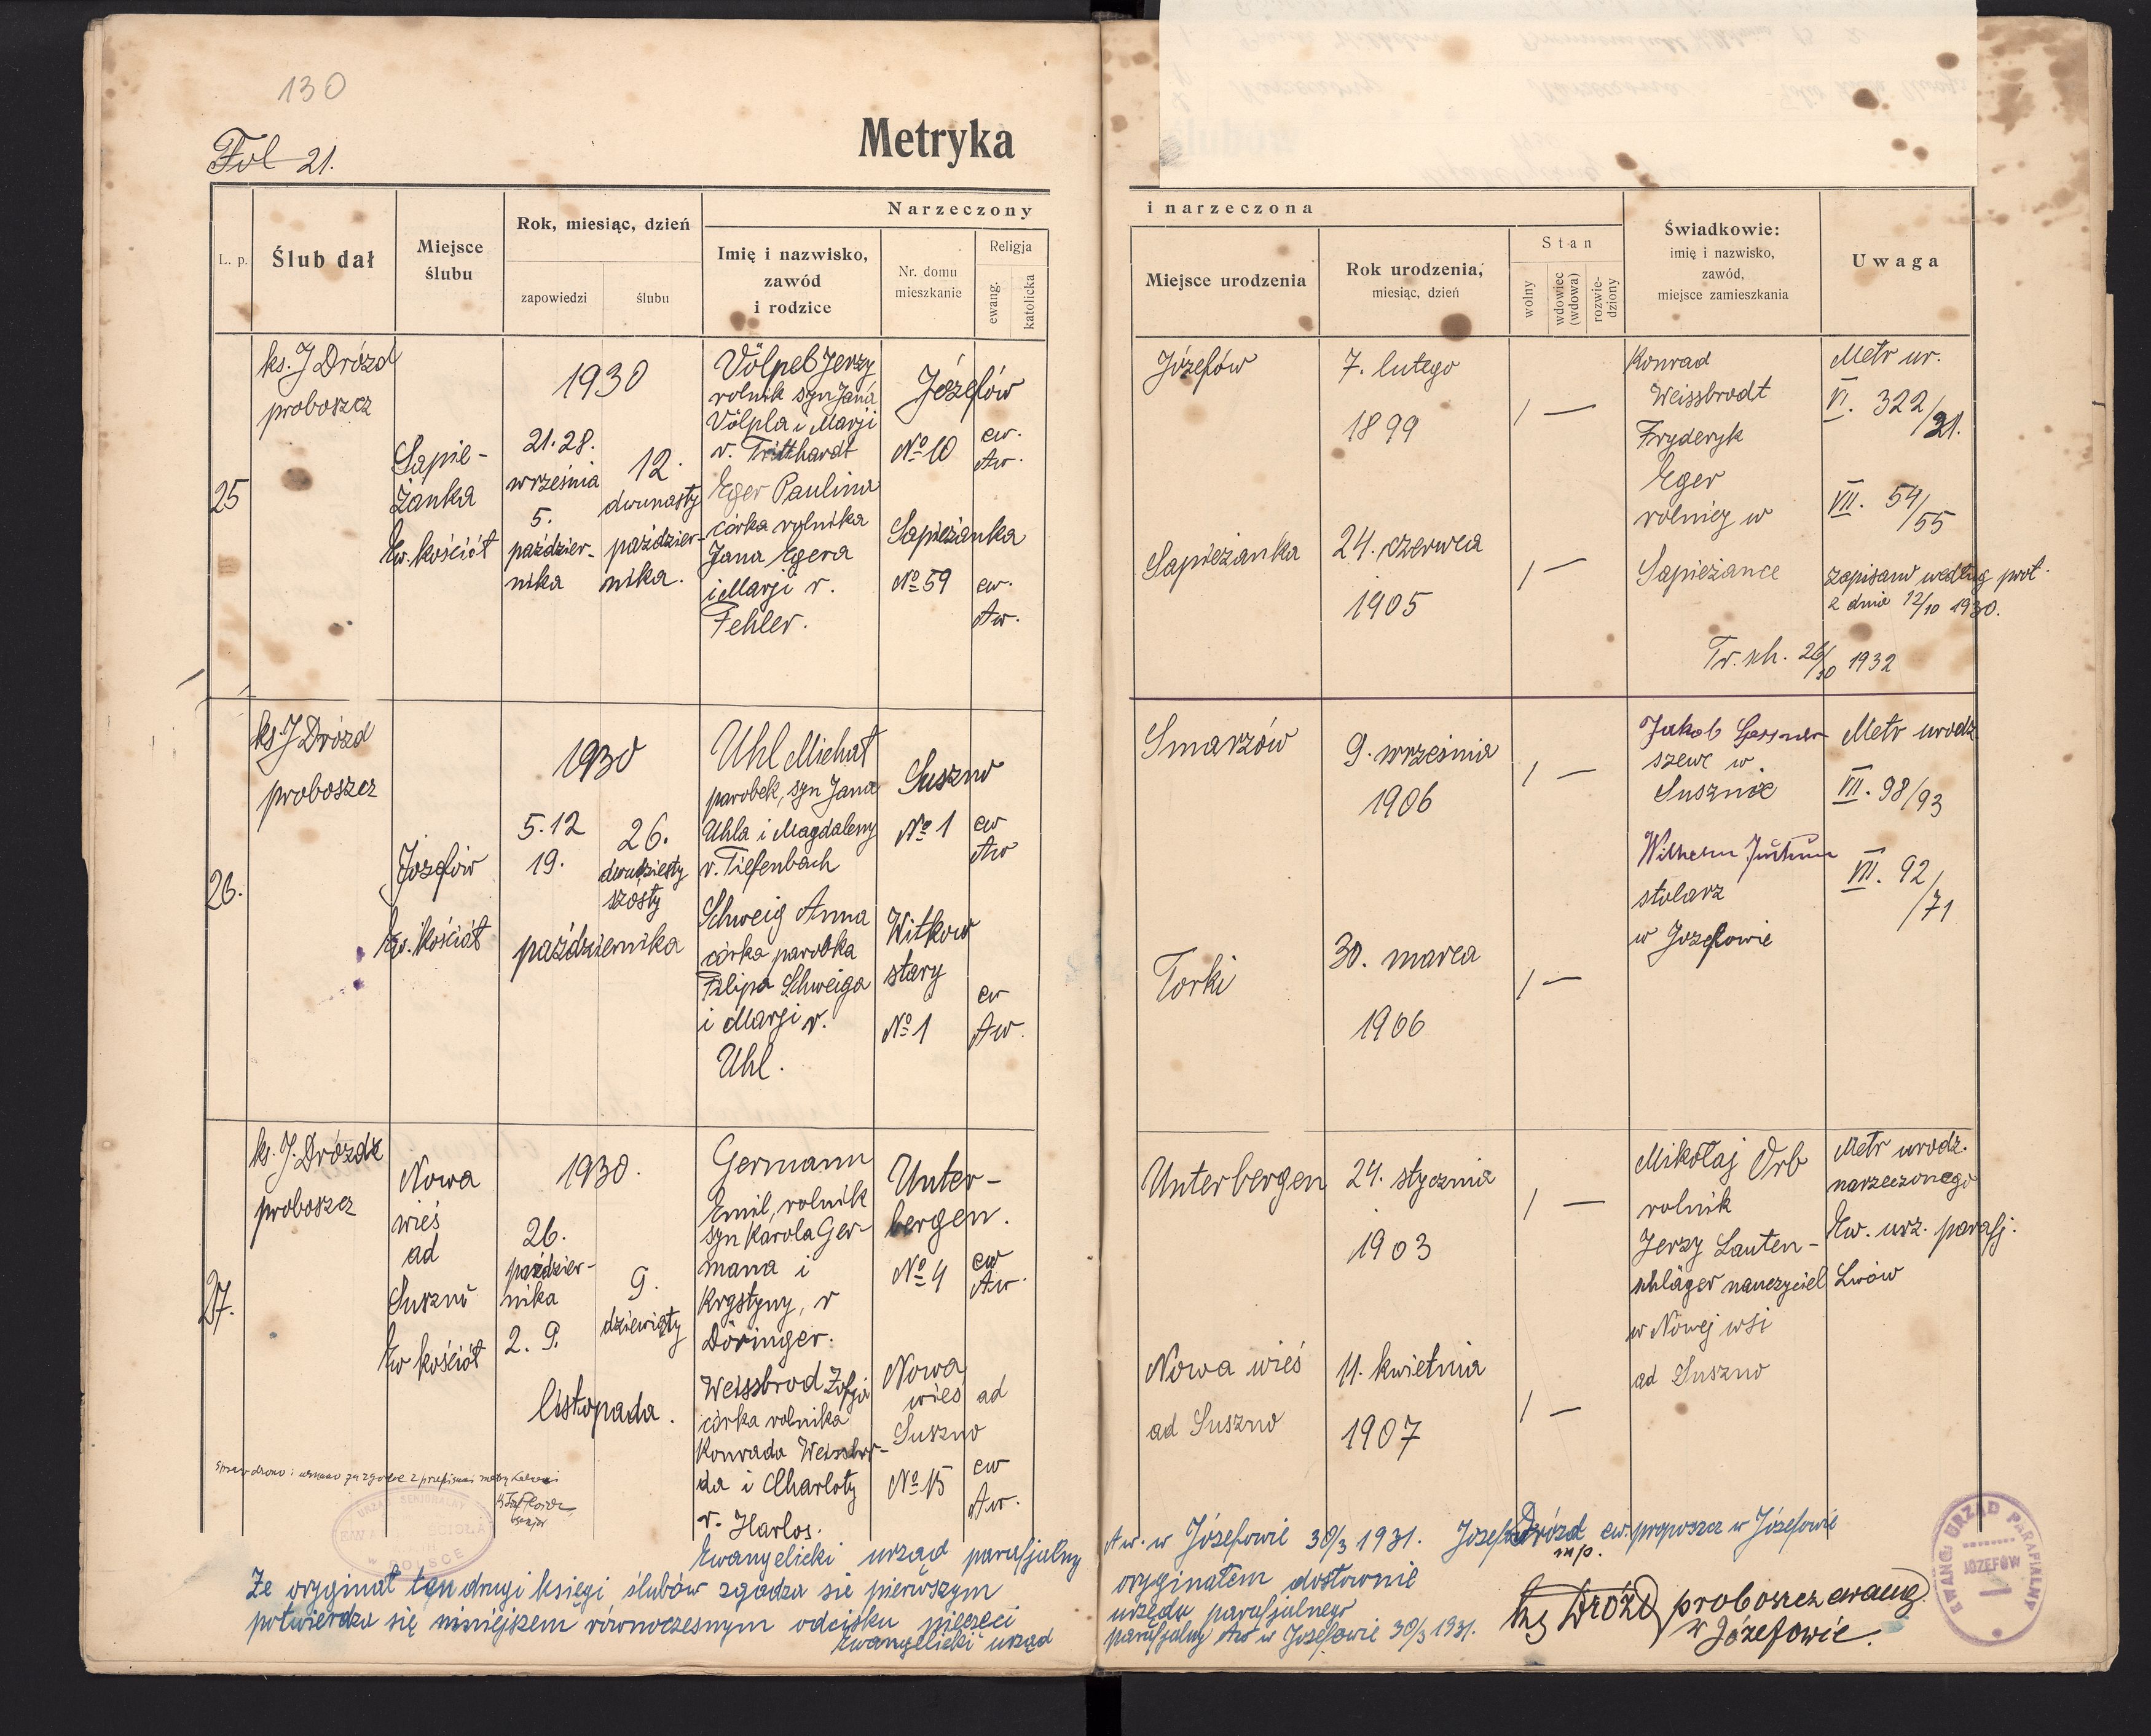 130
Fol 21.
Metryka
Narzeczony
i narzeczona
L. p.
Ślub dał
Miejsce
ślubu
Rok, miesiąc, dzień
zapowiedzi
ślubu
Imię i nazwisko,
zawód
i rodzice
Nr. domu
mieszkanie
Religja
ewang.
katolicka
Miejsce urodzenia
Rok urodzenia,
miesiąc, dzień
Stan
wolny
wdowiec
(wdowa)
rozwie-
dziony
Świadkowie:
imię i nazwisko,
zawód,
miejsce zamieszkania
Uwaga
25
ks. J Drózd
proboszcz
Sapie-
żanka
Ew. kościół
1930
21. 28.
września
5.
paździer-
nika
12.
dwunasty
paździer-
nika.
Völpel Jerzy
rolnik syn Jana
Völpla i Marji
r. Tritthardt
Józefów
No 10
ew.
Aw.
Eger Paulina
córka rolnika
Jana Egera
i Marji r.
Fehler.
Sapieżanka
No 59
ew.
Aw.
Józefów
7. lutego
1899
/ —
Sapieżanka
24. czerwca
1905
/ —
Konrad
Weissbrodt
Fryderyk
Eger
rolnicy w
Sapieżance
Metr ur.
VI. 322/21.
VII. 54/55
zapisano według prot.
z dnia 12/10 1930.
Tr. sch. 26/10 1932
26.
ks. J Drózd
proboszcz
Józefów
Ew. kościół
1930
5. 12
19.
26.
dwudziesty
szósty
października
Uhl Michał
parobek, syn Jana
Uhla i Magdaleny
r. Tiefenbach
Suszno
No 1
ew
Aw
Schweig Anna
córka parobka
Filipa Schweiga
i Marji r.
Uhl.
Witkow
stary
No 1
ew
Aw.
Smarzów
9. września
1906
/ —
Torki
30. marca
1906
/ —
Jakob
szewc w
Susznie
Wilhelm
stolarz
w Jozefowie
Metr urodz
VII. 98/93
VII. 92/71
27.
ks. J. Drózd
proboszcz
Nowa
wieś
ad
Suszno
Ew kościół
1930.
26.
paździer-
nika
2. 9.
9.
dziewiąty
listopada.
Germann
Emil, rolnik
syn Karola Ger-
mana i
Krystyny, r
Döringer.
Unter-
bergen.
No 4
ew
Aw.
Weissbrod Zofja
córka rolnika
Konrada Weissbro-
da i Charloty
r. Harlos.
Nowa
wieś ad
Suszno
No 15
ew
Aw.
Unterbergen
24. stycznia
1903
/ —
Nowa wieś
ad Suszno
11. kwietnia
1907
/ —
Mikołaj Orb
rolnik
Jerzy Lauten-
schläger nauczyciel
w Nowej wsi
ad Suszno
Metr urodz.
narzeczonego
Ew. urz. parafj.
Lwów
Ewangelicki urząd parafjalny Aw. w Józefowie 30/3 1931. Józef Drózd ew. proboszcz w Józefowie
mp.
Że oryginał ten drugi księgi ślubów zgadza się pierwszym oryginałem dosłownie
potwierdza się niniejszem równoczesnym odcisku pieczęci urzędu parafjalnego
Ewangelicki urząd parafjalny Aw w Józefowie 30/3 1931.
Drózd proboszcz ewang.
w Józefowie.
URZĄD SENJORALNY
W POLSCE
EWANG. URZĄD PARAFIALNY
JÓZEFÓW